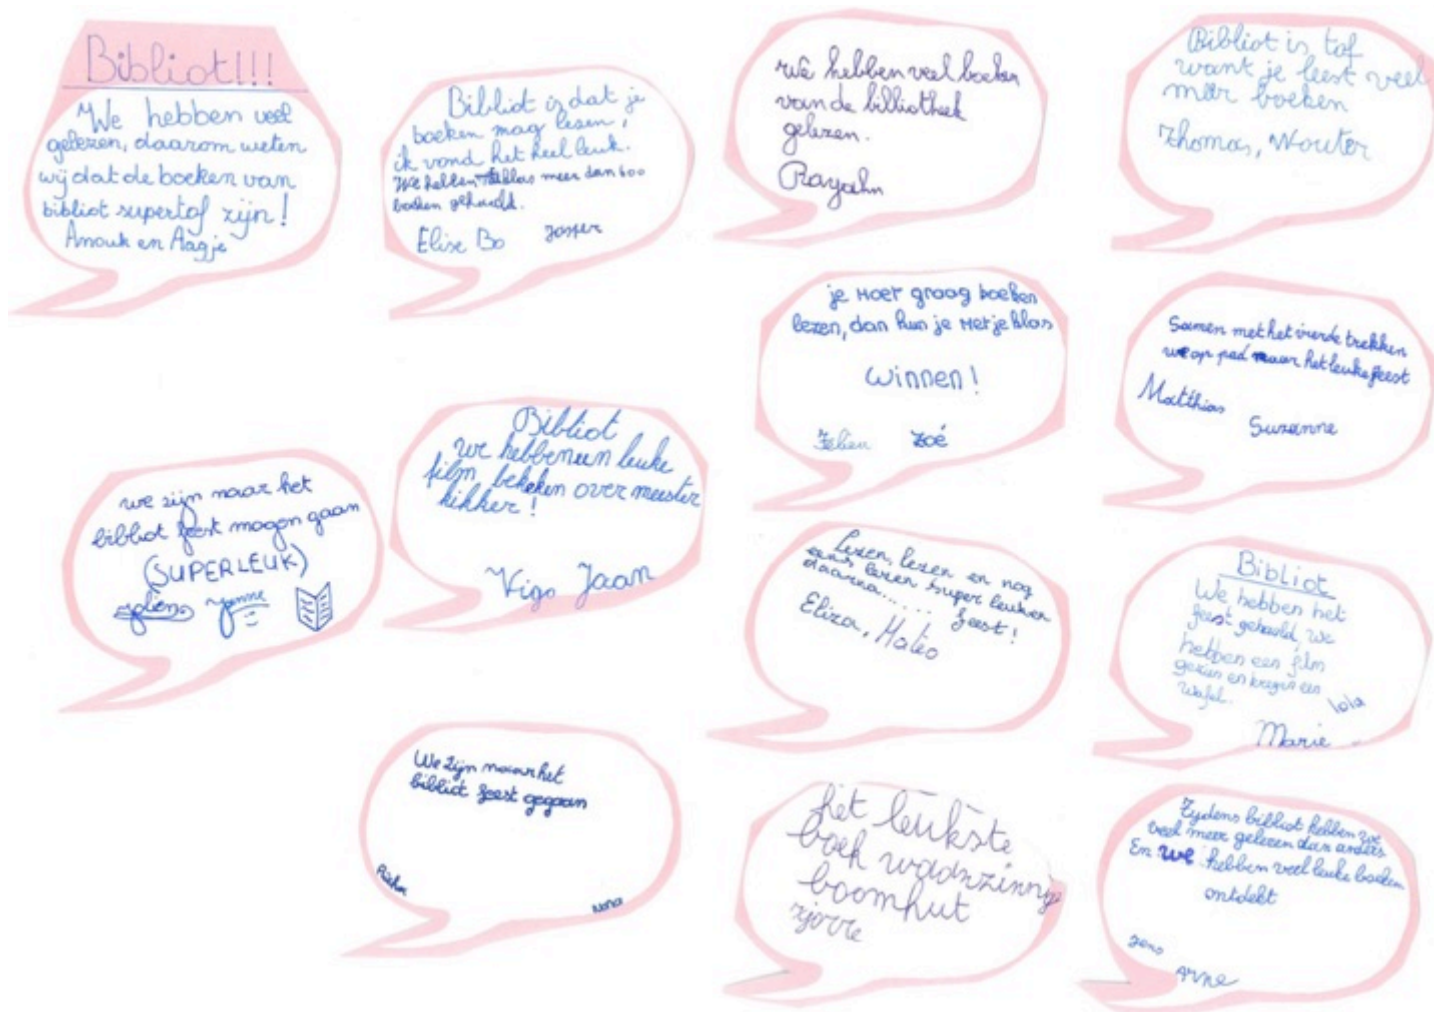 Bibliot!!!
We hebben veel
gelezen, daarom weten
wij dat de boeken van
bibliot supertof zijn!
Anouk en Aagje
Bibliot is dat je
boeken mag lezen,
ik vond het heel leuk.
We hebben klas meer dan 600
boeken gehaald.
Elise Bo Jasper
We hebben veel boeken
van de billiotheek
gelezen.
Rayahn
Bibliot is tof
want je leest veel
meer boeken
Thomas, Wouter
je moet graag boeken
lezen, dan kun je met je klas
winnen!
Zoé
Samen met het vierde trekken
we op pad naar het leuke feest
Matthias
Suzanne
we zijn naar het
bibliot feest mogen gaan
(SUPERLEUK)
Jolien Jenne
Bibliot
we hebben een leuke
film bekeken over meester
kikker!
Vigo Jaan
Lezen, lezen en nog
eens lezen super leuk en
daarna..... feest!
Eliza, Mateo
Bibliot
We hebben het
feest gehaald, we
hebben een film
gezien en kregen een
wafel.
lola
Marie
We zijn naar het
bibliot feest gegaan
Nona
het leukste
boek
boomhut
Tijdens bibliot hebben we
veel meer gelezen dan anders
En we hebben veel leuke boeken
ontdekt
Jens
Arne